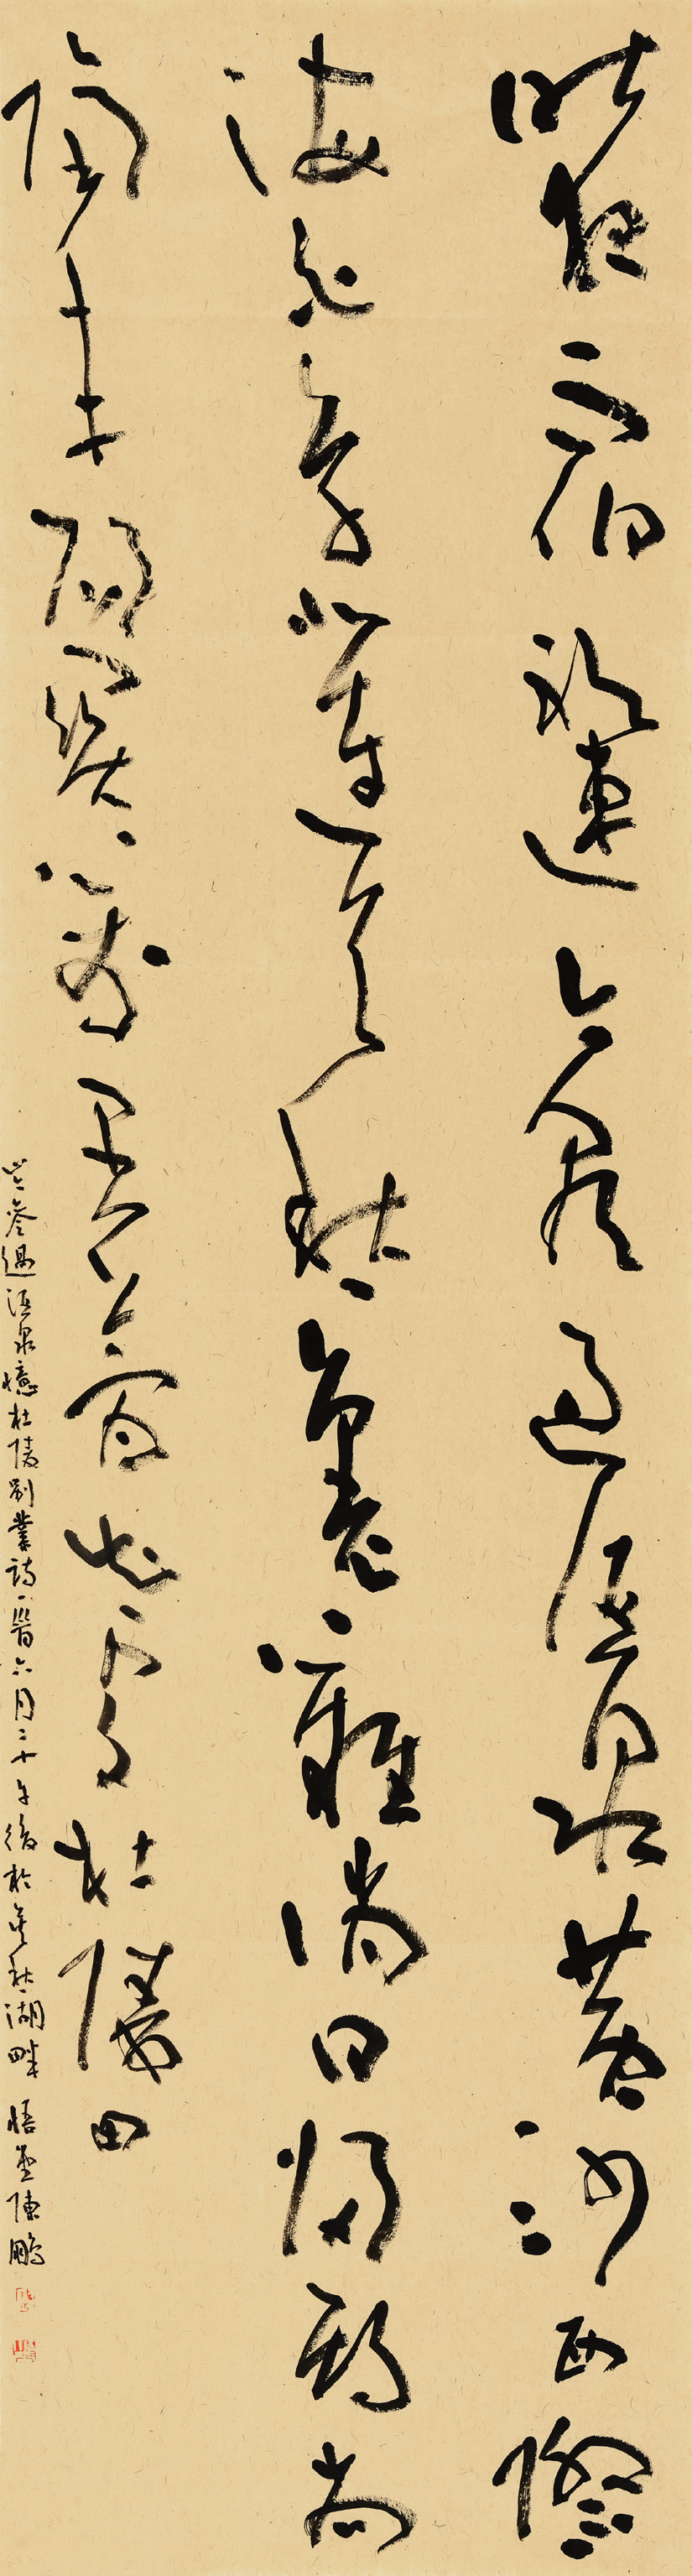 昨夜宿祁連今朝過酒泉黄沙西際
海白草北連天愁裏難消日歸期尚
隔年陽關萬里夢知處杜陵田
岑參過酒泉憶杜陵別業詩 六月二十午後於莫愁湖畔 悟 陳鵬